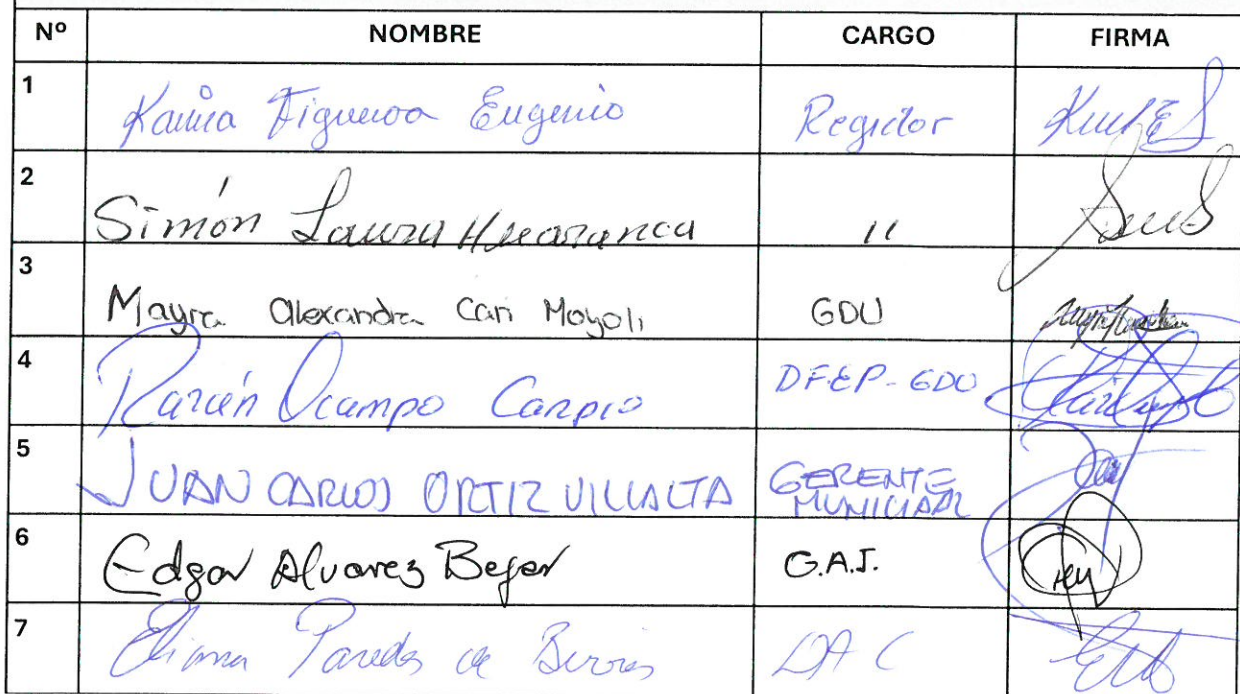 Nº NOMBRE CARGO FIRMA
1 Figueroa Eugenio Regidor
2 Simón Laura Huaranca 11
3 Mayra Alexandra Cari Moyoli GDU
4 Ocampo Carpio DFEP-GDU
5 JUAN CARLOS ORTIZ VILLALTA GERENTE
MUNICIPAL
6 Edgar Alvarez Bejar G.A.J.
7 Eliana Paredes de DAC